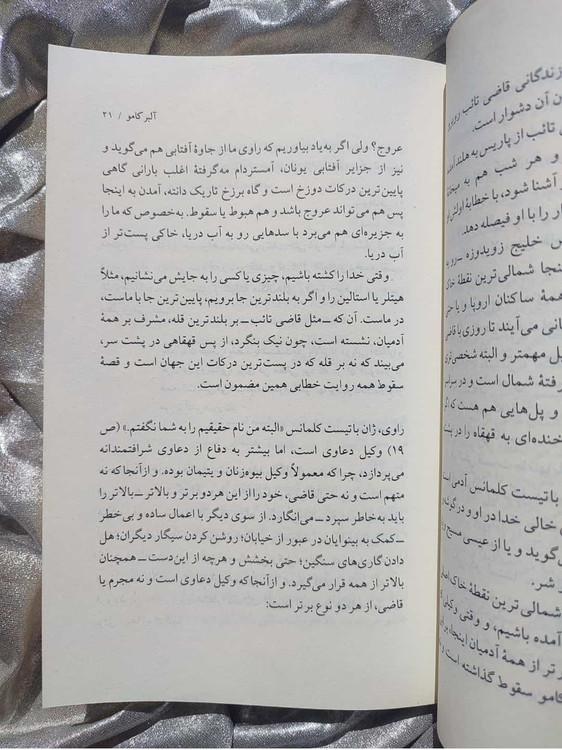 زندگانی قاضی تائب روبرو
ن آن دشوار است.
تائب از پاریس به هلند آمده
و هر شب هم به میخانه
آشنا شود، با خطابهٔ اولش او
ار را با او فیصله دهد.
س خلیج زویدوزه – رو به
اینجا شمالی‌ترین نقطهٔ خاک
همهٔ ساکنان اروپا و یا حتی
انی می‌آیند تا روزی با قاضی
یل مهمتر و البته شخصی‌تری
رفتهٔ شمال است و در سراسر
و پل‌هایی هم هست که اگر
خنده‌ای به قهقاه را در پشت
باتیست کلمانس آدمی است
خالی خدا در او و در گوشه
گوید و یا از عیسی مسیح و
شر.
شمالی‌ترین نقطهٔ خاک
آمده باشیم، و وقتی وکیلی
تر از همهٔ آدمیان اینجا، بر
کامو سقوط گذاشته است و
آلبر کامو / ۲۱
عروج؟ ولی اگر به یاد بیاوریم که راوی ما از جاوهٔ آفتابی هم می‌گوید و
نیز از جزایر آفتابی یونان، آمستردام مه‌گرفتهٔ اغلب بارانی گاهی
پایین‌ترین درکات دوزخ است و گاه برزخ تاریک دانته، آمدن به اینجا
پس هم می‌تواند عروج باشد و هم هبوط یا سقوط. به خصوص که ما را
به جزیره‌ای هم می‌برد با سدهایی رو به آب دریا، خاکی پست‌تر از
آب دریا.
وقتی خدا را کشته باشیم، چیزی یا کسی را به جایش می‌نشانیم، مثلاً
هیتلر یا استالین را و اگر به بلندترین جا برویم، پایین‌ترین جا با ماست،
در ماست. آن که – مثل قاضی تائب – بر بلندترین قله، مشرف بر همهٔ
آدمیان، نشسته است، چون نیک بنگرد، از پس قهقاهی در پشت سر،
می‌بیند که نه بر قله که در پست‌ترین درکات این جهان است و قصهٔ
سقوط همه روایت خطابی همین مضمون است.
راوی، ژان باتیست کلمانس «البته من نام حقیقیم را به شما نگفتم.» (ص
۱۹) وکیل دعاوی است، اما بیشتر به دفاع از دعاوی شرافتمندانه
می‌پردازد، چرا که معمولاً وکیل بیوه‌زنان و یتیمان بوده. و از آنجا که نه
متهم است و نه حتی قاضی، خود را از این هر دو برتر و بالاتر – بالاتر را
باید به خاطر سپرد – می‌انگارد. از سوی دیگر با اعمال ساده و بی‌خطر
– کمک به بینوایان در عبور از خیابان؛ روشن کردن سیگار دیگران؛ هل
دادن گاری‌های سنگین؛ حتی بخشش و هرچه از این‌دست – همچنان
بالاتر از همه قرار می‌گیرد. و از آنجا که وکیل دعاوی است و نه مجرم یا
قاضی، از هر دو نوع برتر است: